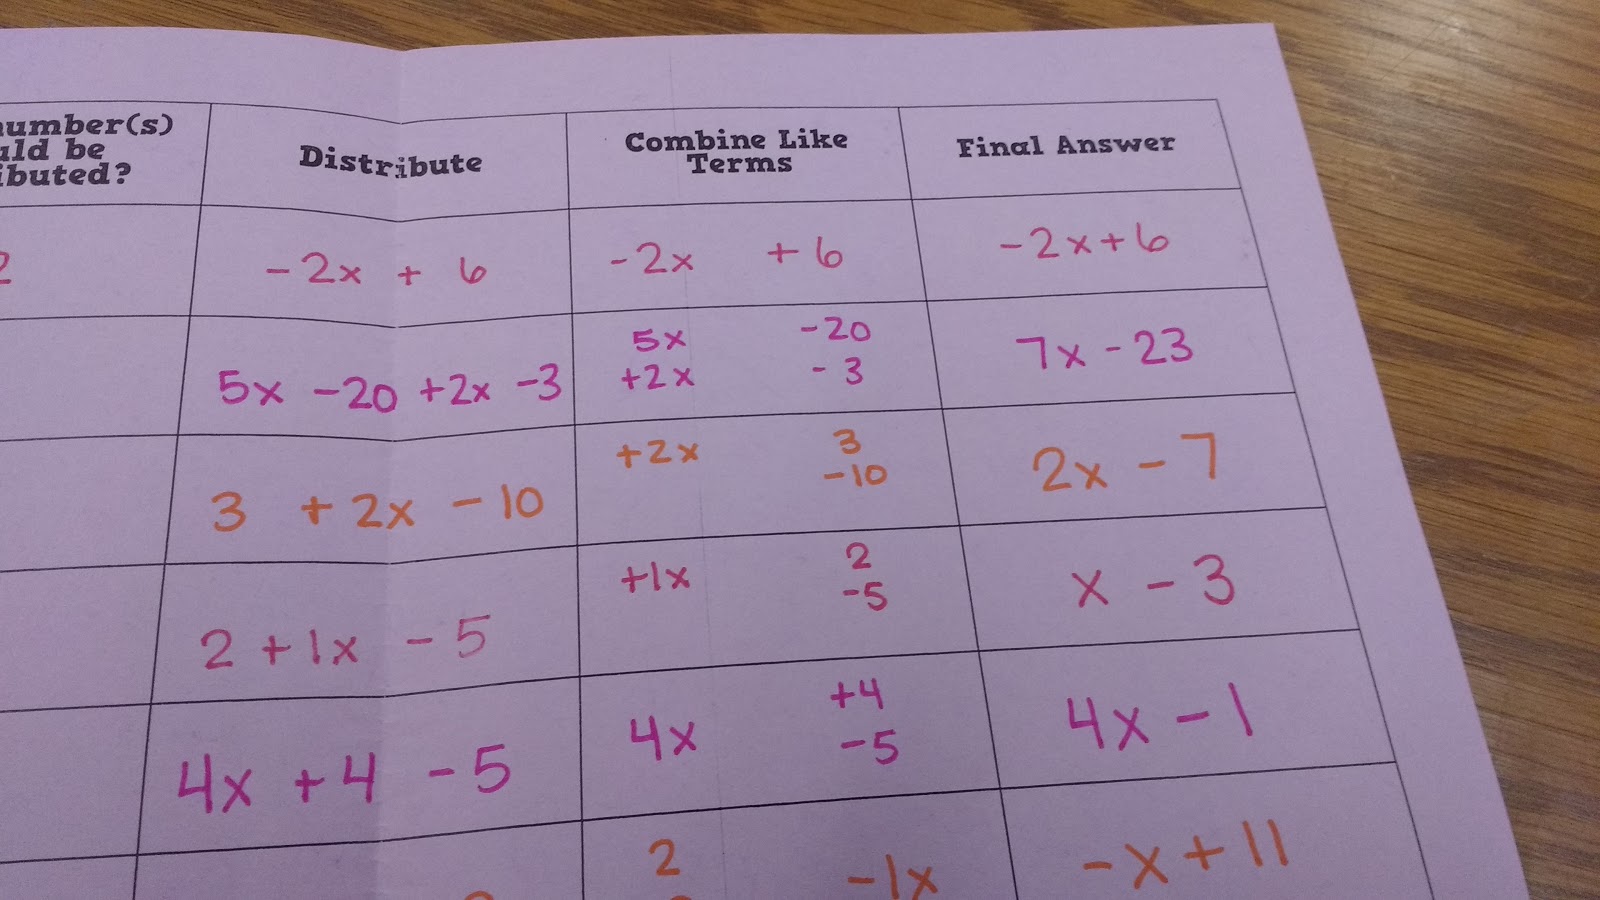 Distribute
Combine Like
Terms
Final Answer
be
-2x + 6
-2x +6
-2x+6
5x -20 +2x -3
5x -20
+2x -3
7x-23
3 +2x -10
+2x 3
-10
2x -7
2 +1x -5
+1x 2
-5
x -3
4x +4 -5
4x +4
-5
4x -1
2 -1x
-x+11